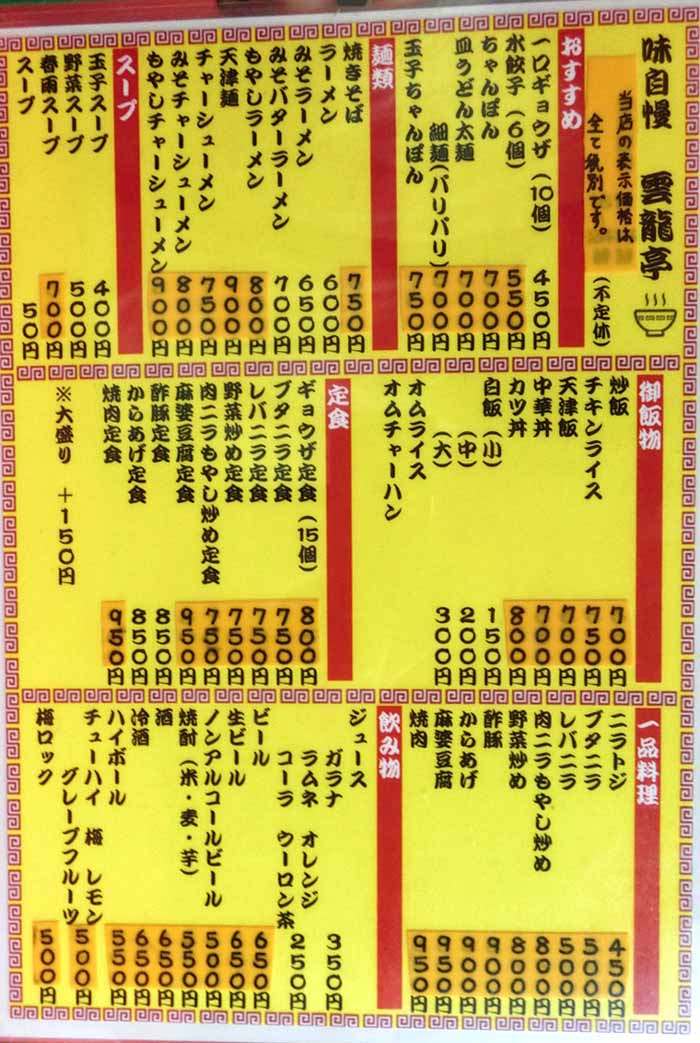 味自慢 雲龍亭
当店の表示価格は
全て税別です。
(不定休)
おすすめ
一口ギョウザ(10個) 450円
水餃子(6個) 550円
ちゃんぽん 700円
皿うどん太麺 700円
細麺(パリパリ) 700円
玉子ちゃんぽん 750円
麺類
焼きそば 750円
ラーメン 600円
みそラーメン 650円
みそバターラーメン 700円
もやしラーメン 800円
天津麺 900円
チャーシューメン 750円
みそチャーシューメン 800円
もやしチャーシューメン 900円
スープ
玉子スープ 400円
野菜スープ 500円
春雨スープ 700円
スープ 50円
御飯物
炒飯 700円
チキンライス 750円
天津飯 700円
中華丼 700円
カツ丼 800円
白飯(小) 150円
(中) 200円
(大) 300円
オムライス
オムチャーハン
定食
ギョウザ定食(15個) 800円
ブタニラ定食 750円
レバニラ定食 750円
野菜炒め定食 750円
肉ニラもやし炒め定食 750円
麻婆豆腐定食 950円
酢豚定食 850円
からあげ定食 850円
焼肉定食 950円
※大盛り +150円
一品料理
ニラトジ 450円
ブタニラ 500円
レバニラ 500円
肉ニラもやし炒め 800円
野菜炒め 800円
酢豚 900円
からあげ 900円
麻婆豆腐 900円
焼肉 950円
飲み物
ジュース
ガラナ 350円
ラムネ オレンジ
コーラ ウーロン茶 250円
ビール 650円
生ビール 650円
ノンアルコールビール 500円
焼酎(米・麦・芋) 550円
酒 650円
冷酒 650円
ハイボール 550円
チューハイ 梅 レモン 500円
グレープフルーツ
梅ロック 500円